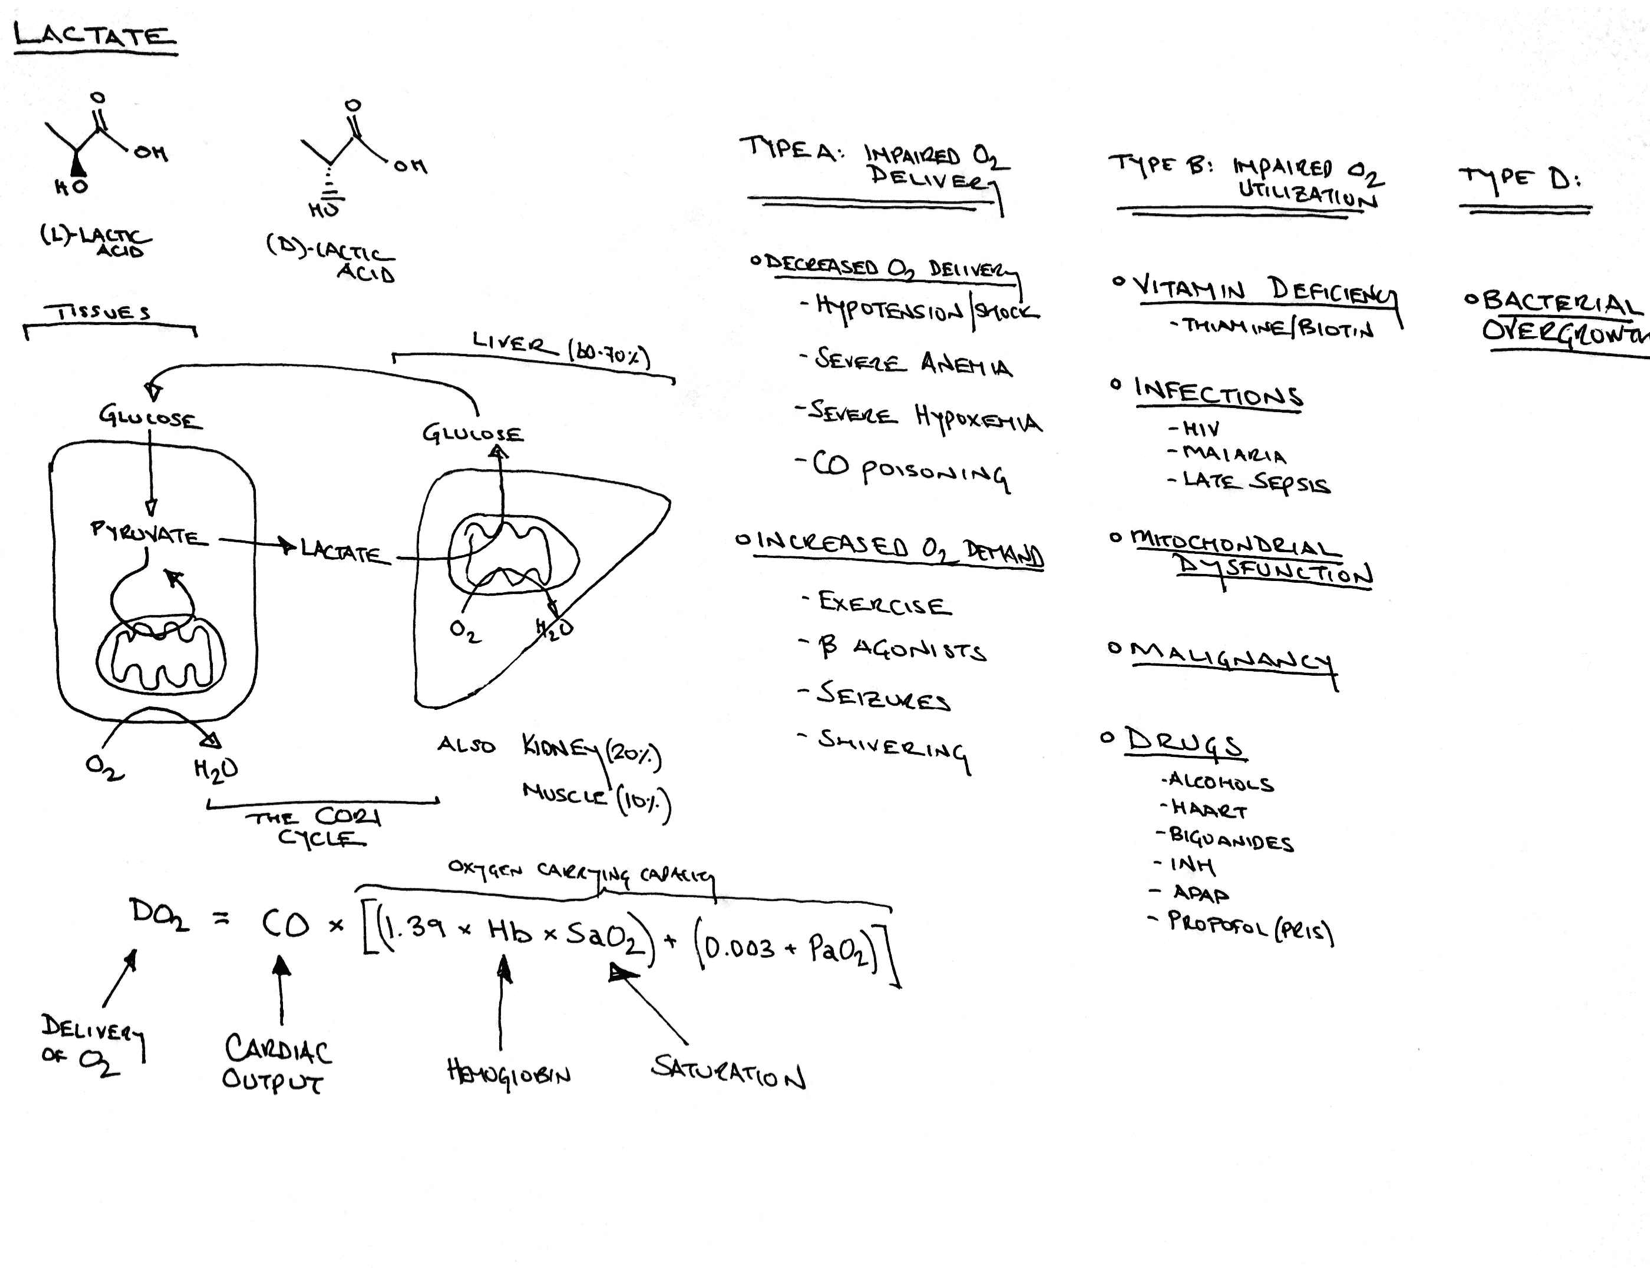 LACTATE
O
OH
HO
(L)-LACTIC
ACID
O
OH
HO
(D)-LACTIC
ACID
TISSUES
LIVER (60-70%)
GLUCOSE
GLUCOSE
PYRUVATE
LACTATE
O2
H2O
O2
H2O
ALSO KIDNEY (20%)
MUSCLE (10%)
THE CORI
CYCLE
OXYGEN CARRYING CAPACITY
DO2 = CO × [(1.39 × Hb × SaO2) + (0.003 + PaO2)]
DELIVERY
OF O2
CARDIAC
OUTPUT
HEMOGLOBIN
SATURATION
TYPE A: IMPAIRED O2
DELIVERY
DECREASED O2 DELIVERY
- HYPOTENSION/SHOCK
- SEVERE ANEMIA
- SEVERE HYPOXEMIA
- CO POISONING
INCREASED O2 DEMAND
- EXERCISE
- β AGONISTS
- SEIZURES
- SHIVERING
TYPE B: IMPAIRED O2
UTILIZATION
VITAMIN DEFICIENCY
- THIAMINE/BIOTIN
INFECTIONS
- HIV
- MALARIA
- LATE SEPSIS
MITOCHONDRIAL
DYSFUNCTION
MALIGNANCY
DRUGS
- ALCOHOLS
- HAART
- BIGUANIDES
- INH
- APAP
- PROPOFOL (PRIS)
TYPE D:
BACTERIAL
OVERGROWTH